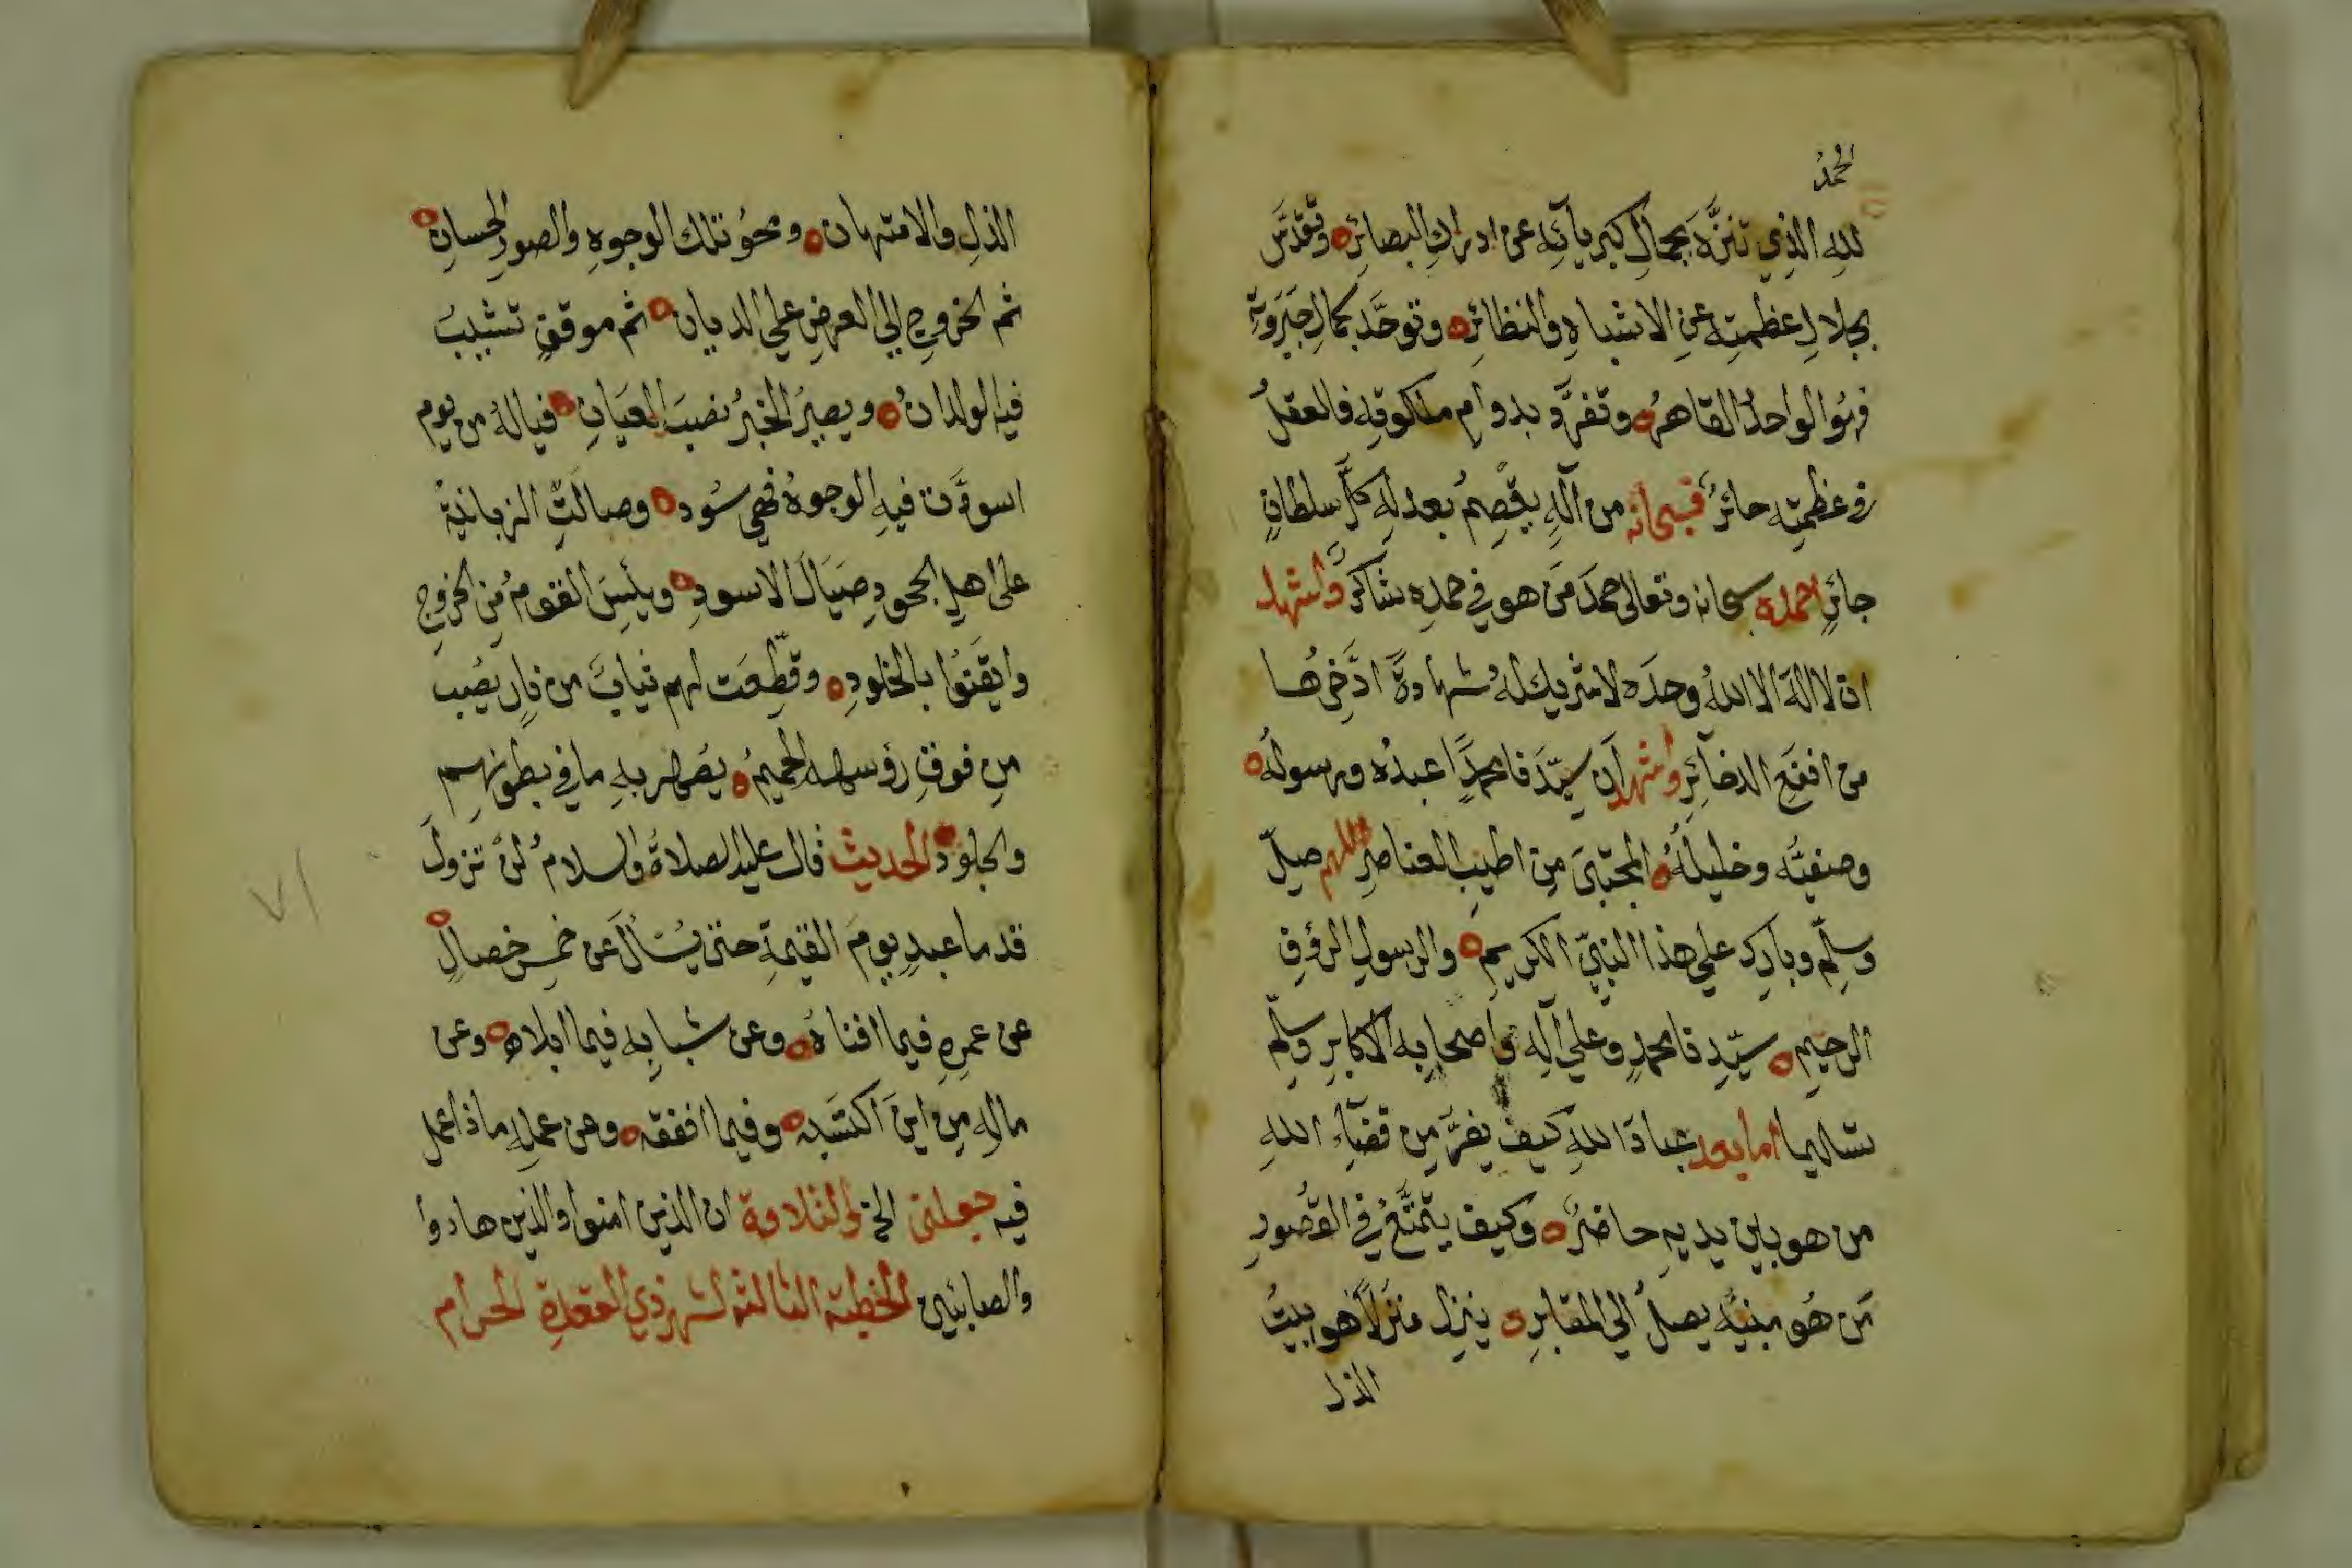 الحمدُ
للهِ الذِي تنزَّهَ بجمالِ كبريآئِهِ عن ادراكِ البصائرِ وتقدَّسَ
بجلالِ عظمتِهِ عنِ الاشباهِ والنظائرِ وتوحَّدَ بكمالِ جَبَروتِهِ
فهُو الواحدُ القاهرُ وتفرَّد بدوامِ ملكوتِهِ فالعقلُ
في عظمتِهِ حائرٌ فسبحانه من اَلهٍ يقصِمُ بعدلِهِ كلَّ سلطانٍ
جائرٍ احمده سبحانه وتعالى حمدَ مَن هو في حمدِهِ شاكرٌ واشهد
ان لا اله الا اللهُ وحدَه لا شريك لهُ شهادةً ادَّخِرُها
من انفعِ الذخآئِرِ واشهد اَن سيّدَنا محمدًا عبدُه ورسولُه
وصفيُّه وخليلُهُ المجتبَى مِن اطيبِ العناصرِ اللهم صلّ
وسلِّم وبارِك على هذا النبيّ الكريمِ والرسولِ الرؤفِ
الرحيمِ سيّدِنا محمدٍ وعلى آلِهِ واصحابِهِ الاكابرِ وسلِّم
تسليما اما بعد عبادَ اللهِ كيف يفرُّ مِن قضآءِ اللهِ
من هو بين يديهِ حاضرٌ وكيف يتمتَّعُ في القُصُورِ
مَن هُو مبنيُّه يصلُ الى المقابرِ ينزل منزلًا هو بيتُ
الذل
الذلِ والامتهان ومحوُ تلك الوجوهِ والصورِ الحسانِ
ثم الخروجِ الى العرضِ على الديان ثم موقفٍ تشيبُ
فيهِ الولدانُ ويصيرُ الخبرُ نصبَ العيَانِ فيالهُ من يوم
اسودَّت فيهِ الوجوهُ فهي سُود وصالَتِ الزبانيةُ
على اهلِ الجحودِ صيَالَ الاسودِ ويئِسَ القومُ مِن الخروجِ
وايقَنُوا بالخلودِ وقطِّعَت لهم ثيابٌ من نارٍ يُصَب
مِن فوقِ رؤسهم الحميمُ يصهر بهِ ما في بطونهِم
والجلودُ الحديث قال عليه الصلاةُ والسلامُ لنْ تزولَ
قدما عبدٍ يومَ القيمةِ حتى يُسْألَ عن خمسِ خصالٍ
عن عمرِهِ فيما افناهُ وعن شبابِهِ فيما ابلاه وعن
مالِهِ مِن اينَ اكتسَبه وفيما انفقه وعن عملِهِ ماذا عمل
فيه جعلنى الخ والتلاوة ان الذين امنوا والذين هادوا
والصابئين الخطبة الثالثة لشهر ذي القعدة الحرام
٧١